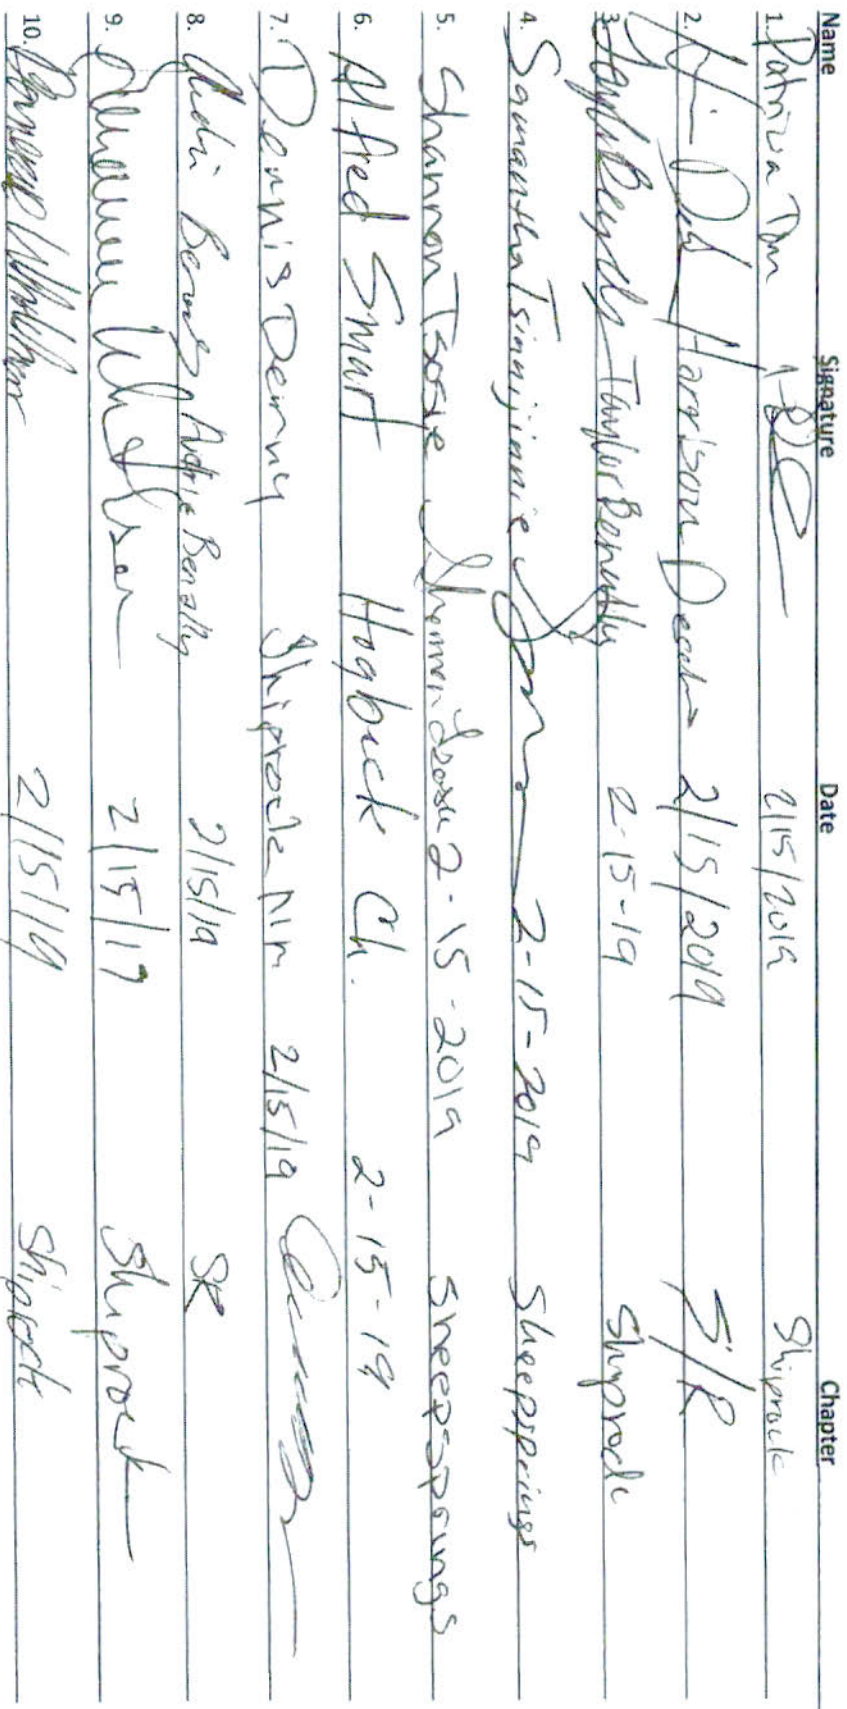 Name Signature Date Chapter
1. Patricia Tom 2/15/2019 Shiprock
2. Harrison 2/15/2019 S/R
3. Taylor Benally 2-15-19 Shiprock
4. Samantha Tsinnijinnie 2-15-2019 Sheepsprings
5. Shannon Tsosie Shannon Tsosie 2-15-2019 Sheepsprings
6. Alfred Smart Hogback Ch. 2-15-19
7. Dennis Denny Shiprock NM 2/15/19
8. Benally 2/15/19 SR
9. 2/15/19 Shiprock
10. 2/15/19 Shiprock